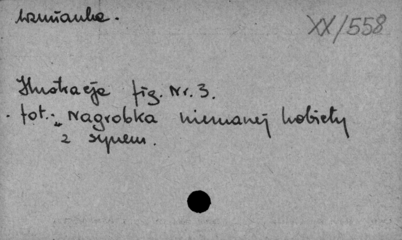 XX/558
Ilustracja fig. Nr. 3.
fot. „Nagrobka nieznanej kobiety
z synem.